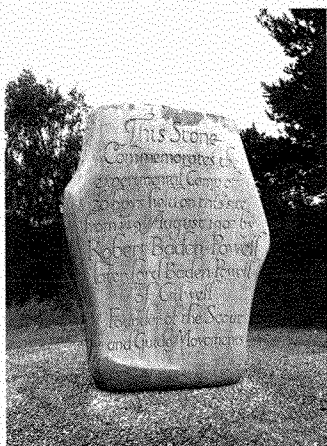 This Stone
Commemorates the
experimental Camp of
20 boys held on this site
from 1st–9th August 1907 by
Robert Baden Powell
later Lord Baden Powell
of Gilwell
Founder of the Scout
and Guide Movements